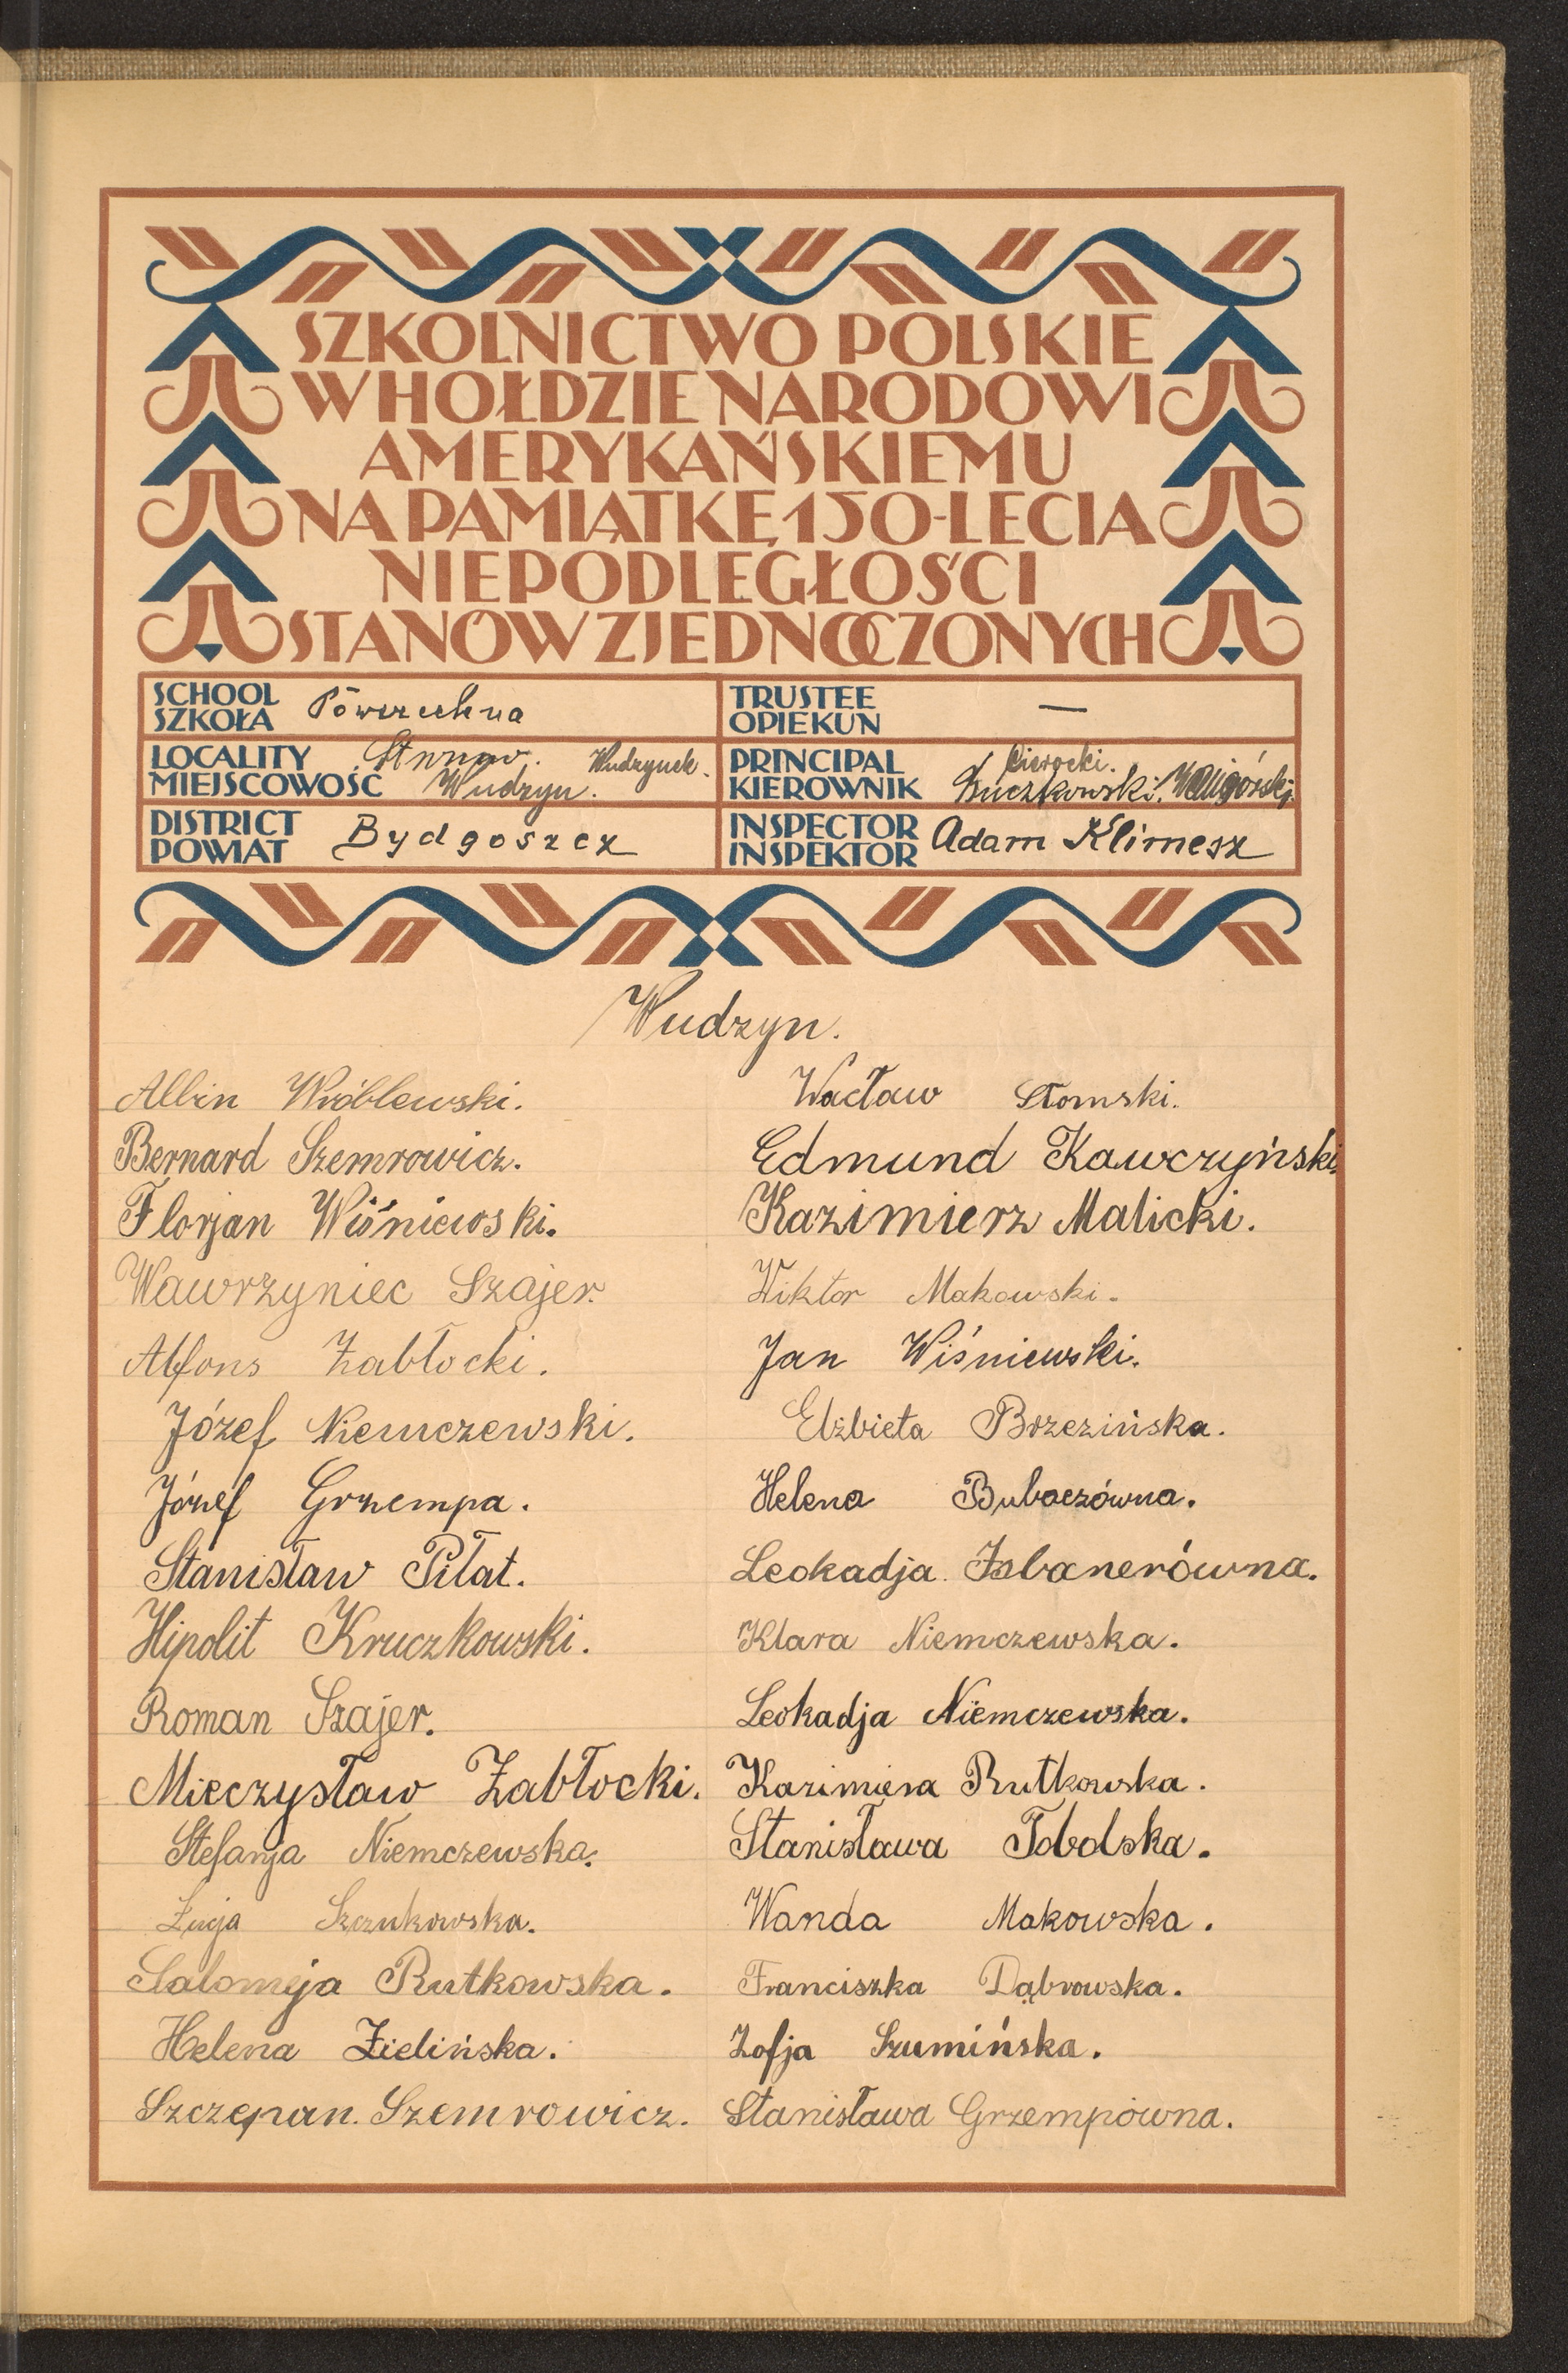 SZKOLNICTWO POLSKIE
W HOŁDZIE NARODOWI
AMERYKAŃSKIEMU
NA PAMIĄTKĘ 150-LECIA
NIEPODLEGŁOŚCI
STANÓW ZJEDNOCZONYCH
SCHOOL
SZKOŁA Powszechna
TRUSTEE
OPIEKUN —
LOCALITY
MIEJSCOWOŚĆ Wudzynek.
Wudzyn.
PRINCIPAL
KIEROWNIK Waligórski
DISTRICT
POWIAT Bydgoszcz
INSPECTOR
INSPEKTOR Adam Klimesz
Wudzyn.
Albin Wróblewski.
Bernard Szemrowicz.
Florjan Wiśniewski.
Wawrzyniec Szajer.
Alfons Zabłocki.
Józef Niemczewski.
Józef Grzempa.
Stanisław Piłat.
Hipolit Kruczkowski.
Roman Szajer.
Mieczysław Zabłocki.
Stefanja Niemczewska.
Łucja Szczukowska.
Salomeja Rutkowska.
Helena Zielińska.
Szczepan. Szemrowicz.
Wacław Słomski.
Edmund Kawczyński
Kazimierz Malicki.
Wiktor Makowski.
Jan Wiśniewski.
Elżbieta Brzezińska.
Helena Bubaczówna.
Leokadja
Klara Niemczewska.
Leokadja Niemczewska.
Kazimiera Rutkowska.
Stanisława Tobolska.
Wanda Makowska.
Franciszka Dąbrowska.
Zofja Szumińska.
Stanisława Grzempówna.